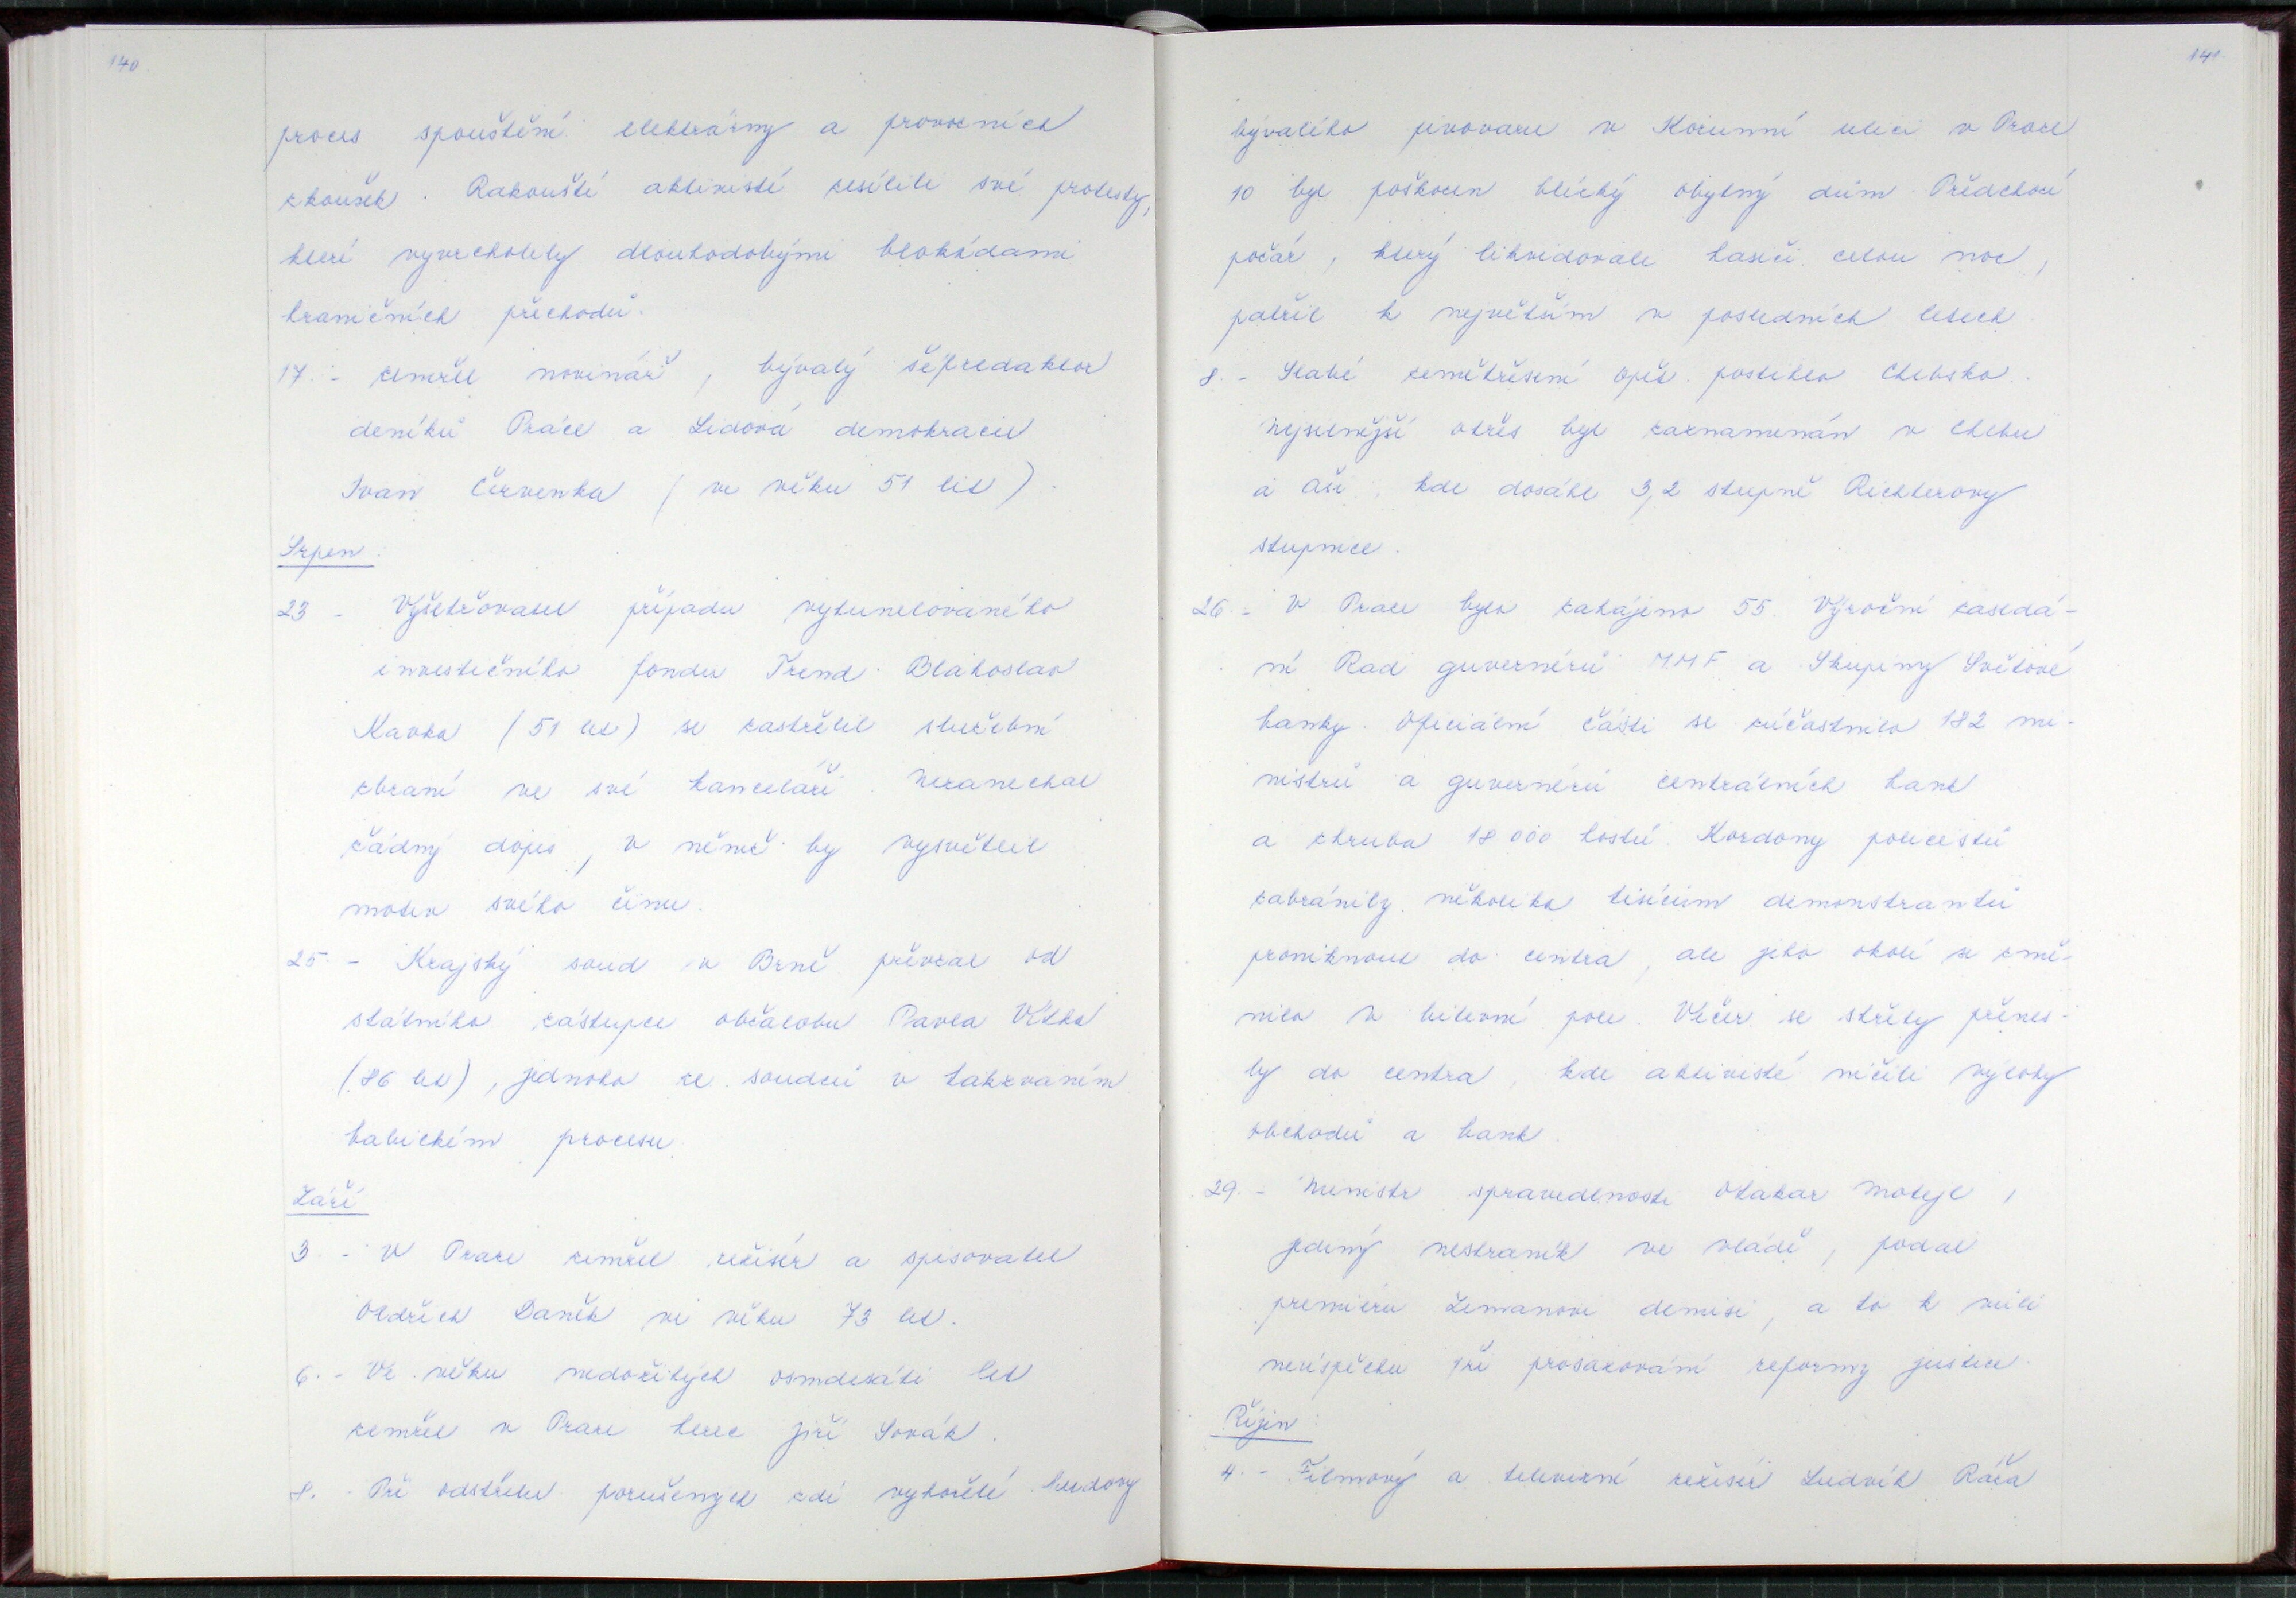 140
proces spouštění elektrárny a provozních
zkoušek. Rakouští aktivisté zesílili své protesty,
které vyvrcholily dlouhodobými blokádami
hraničních přechodů.
17. - zemřel novinář, bývalý šéfredaktor
deníků Práce a Lidová demokracie
Ivan Červenka (ve věku 51 let).
Srpen:
23 - Vyšetřovatel případu vytunelovaného
investičního fondu Trend Blahoslav
Kavka (51 let) se zastřelil služební
zbraní ve své kanceláři. Nezanechal
žádný dopis, v němž by vysvětlil
motiv svého činu.
25. - Krajský soud v Brně převzal od
státního zástupce obžalobu Pavla Vítka
(86 let), jednoho ze soudců v takzvaném
babickém procesu.
Září
3. - V Praze zemřel režisér a spisovatel
Oldřich Daněk ve věku 73 let.
6. - Ve věku nedožitých osmdesáti let
zemřel v Praze herec Jiří Sovák.
8. - Při odstřelu porušených zdí vyhořelé budovy
141
bývalého pivovaru v Korunní ulici v Praze
10 byl poškozen blízký obytný dům. Předchozí
požár, který likvidovali hasiči celou noc,
patřil k největším v posledních letech.
8. - Slabé zemětřesení opět postihlo Chebsko.
Nejsilnější otřes byl zaznamenán v Chebu
a Aši, kde dosáhl 3,2 stupně Richterovy
stupnice.
26. - V Praze bylo zahájeno 55. Výroční zasedá-
ní Rad guvernérů MMF a Skupiny Světové
banky. Oficiální části se zúčastnilo 182 mi-
nistrů a guvernérů centrálních bank
a zhruba 18 000 hostů. Kordony policistů
zabránily několika tisícům demonstrantů
proniknout do centra, ale jeho okolí se změ-
nilo v bitevní pole. Večer se střety přenes-
ly do centra, kde aktivisté ničili výlohy
obchodů a bank.
29. - Ministr spravedlnosti Otakar Motejl,
jediný nestraník ve vládě, podal
premiéru Zemanovi demisi, a to k vůli
neúspěchu při prosazování reformy justice.
Říjen:
4. - Filmový a televizní režisér Ludvík Ráža